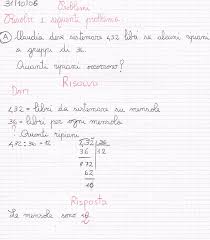 31/10/06
Problemi
Risolvi il seguente problema.
A Claudia deve sistemare 432 libri su alcuni ripiani
a gruppi di 36.
Quanti ripiani occorrono?
Risolvo
Dati
432 = libri da sistemare su mensole
36 = libri per ogni mensola
? Quanti ripiani
432 : 36 = 12
432 36
36 12
072
62
10
Risposta
Le mensole sono